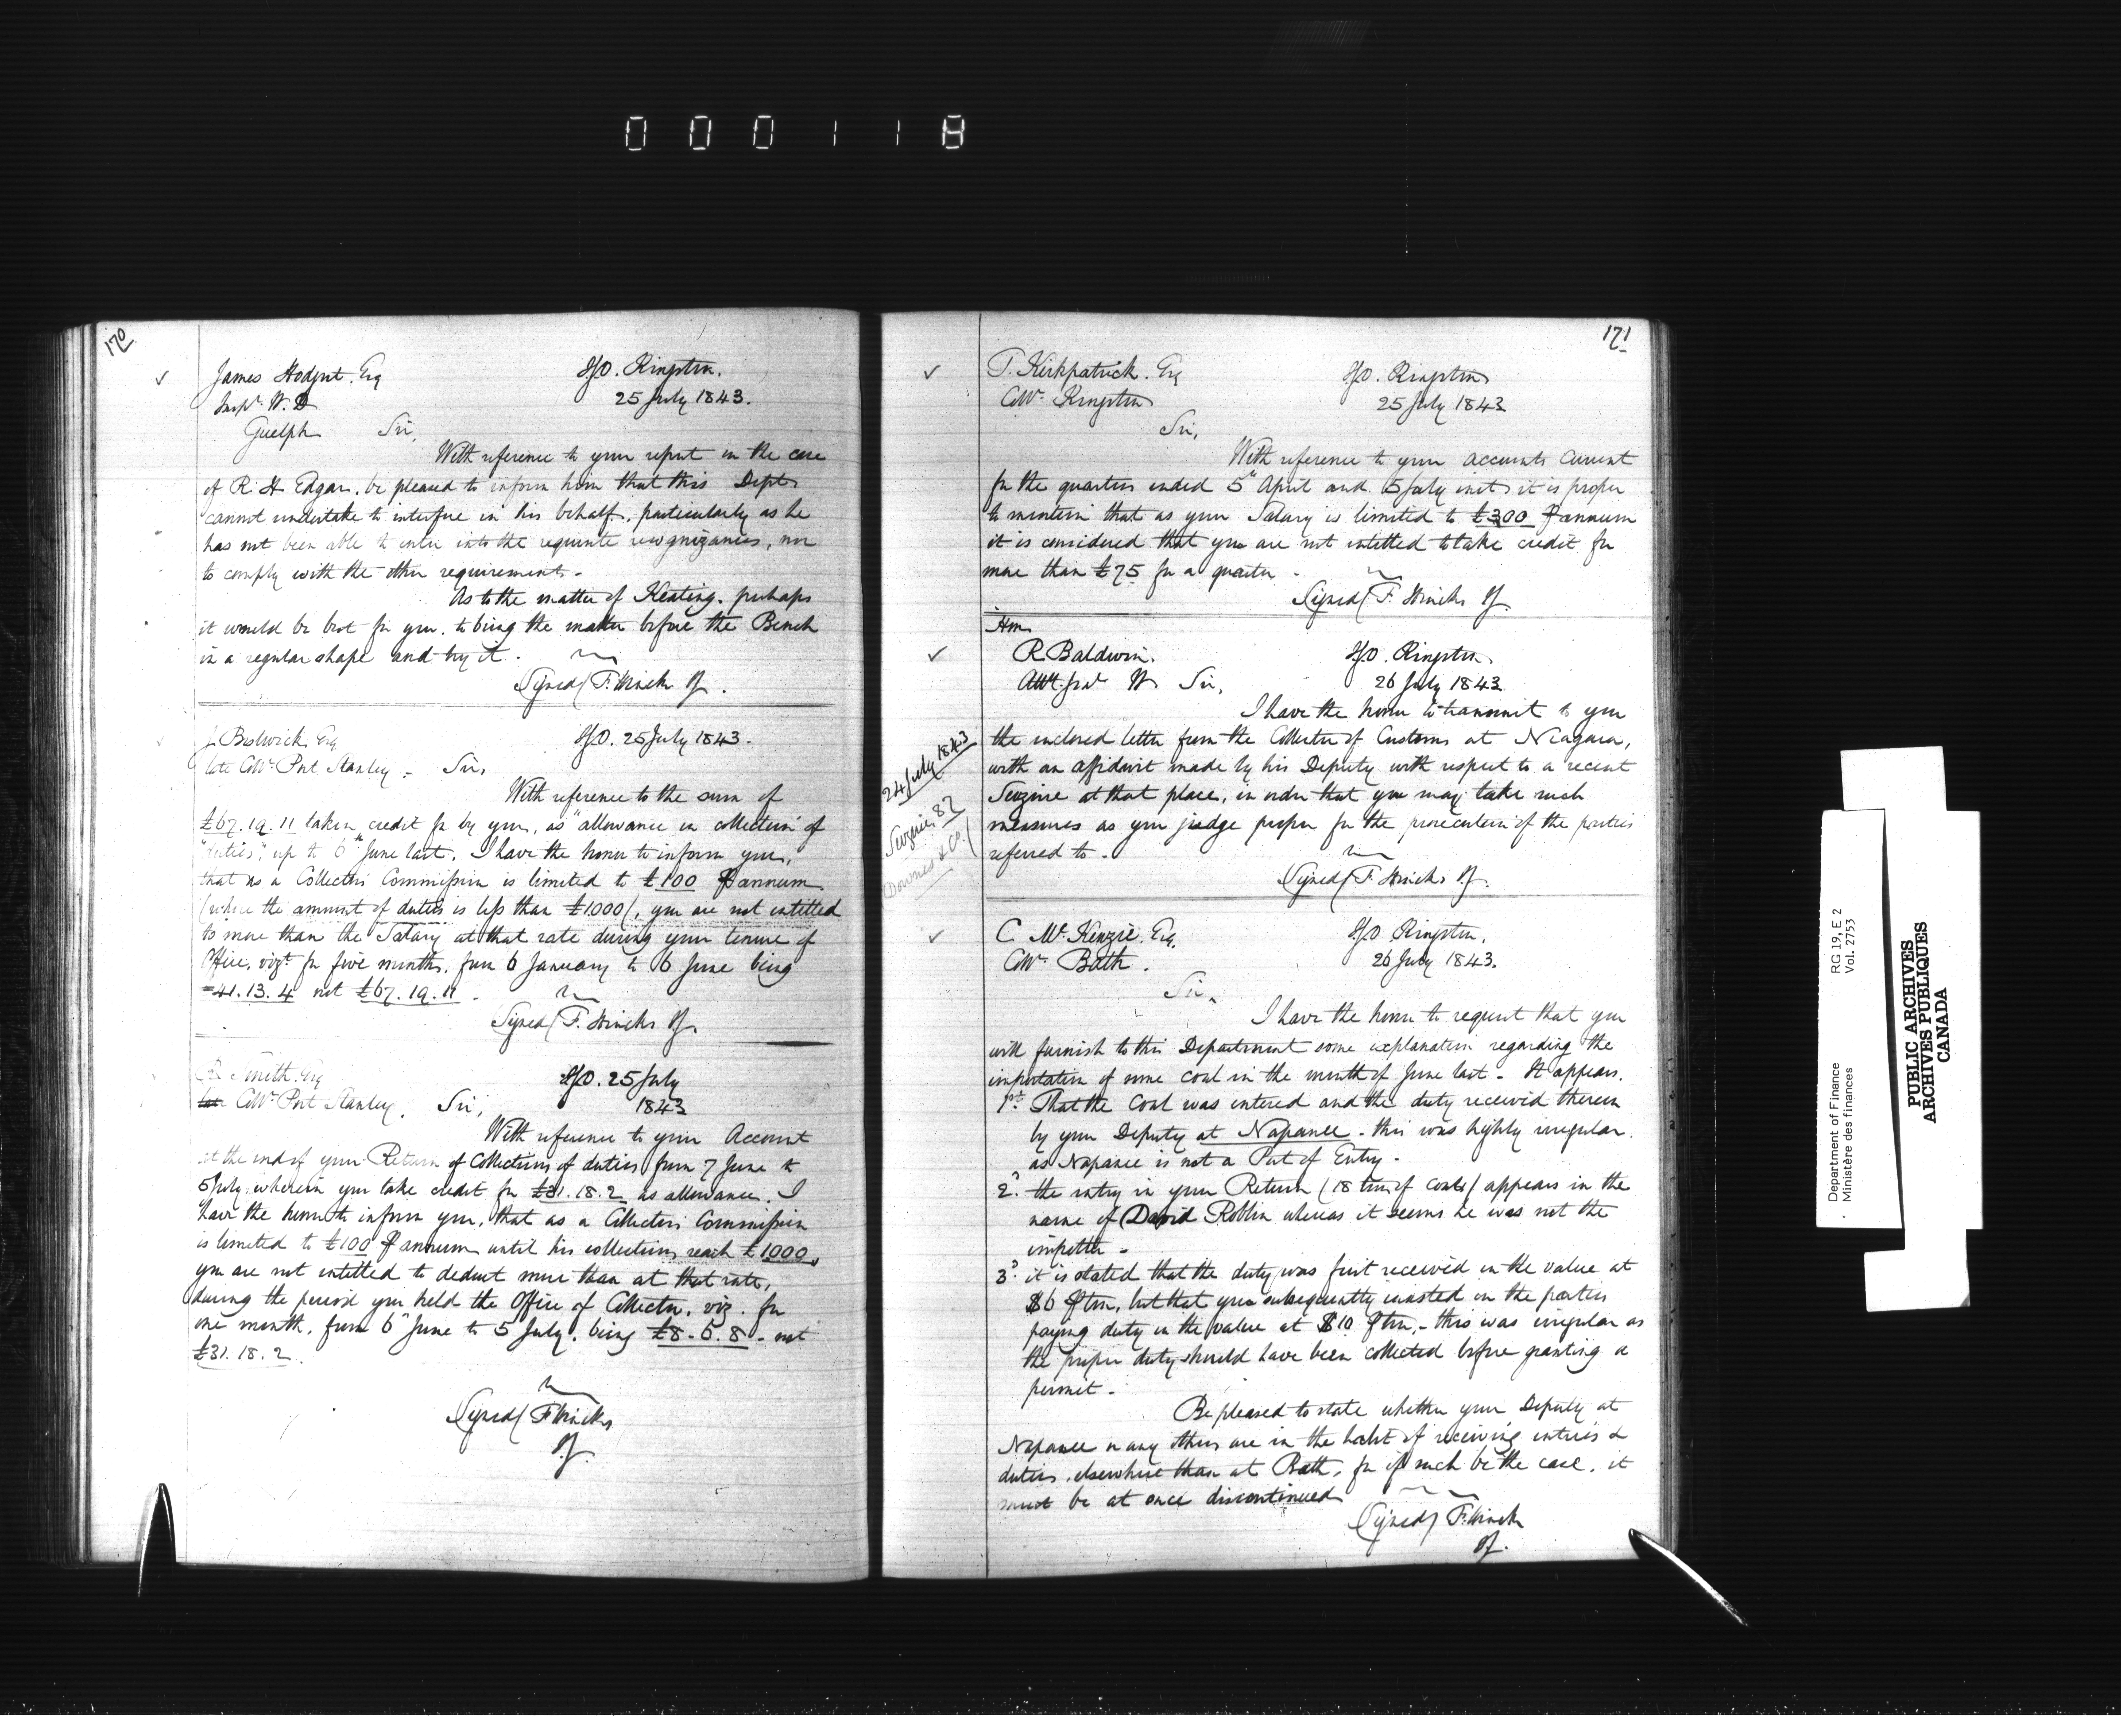 000118
170
James Hodgert Esq
Inspr. W. D
Guelph Sir,
IGO. Kingston.
25 July 1843.
With reference to your report in the case
of R. H Edgar, be pleased to inform him that this Dept
cannot undertake to interfere in his behalf, particularly as he
has not been able to enter into the requisite recognizances, nor
to comply with the other requirements -
As to the matter of Keating, perhaps
it would be best for you, to bring the matter before the Bench
in a regular shape and try it.
Signed/ F. Hincks IG.
J. Bostwick Esq
late Collr Port Stanley. Sir,
IGO. 25 July 1843.
With reference to the sum of
£67.19.11 taken credit for by you, as "allowance on collection of
"duties", up to 6th June last, I have the honor to inform you,
that as a Collectors Commission is limited to £100 ⅌ annum
(where the amount of duties is less than £1000/, you are not intitled
to more than the Salary at that rate during your tenure of
Office, vizt for five months, from 6 January to 6 June being
£41.13.4 not £67.19.11.
Signed/ F. Hincks IG.
Smith Esq
late Collr Port Stanley. Sir,
IGO. 25 July
1843
With reference to your Account
at the end of your Return of Collections of duties from 7 June to
5 July, wherein you take credit for £31.18.2 as allowance, I
have the honor to inform you, that as a Collectors Commission
is limited to £100 ⅌ annum until his collections reach £1000,
you are not intitled to deduct more than at that rate,
during the period you held the Office of Collector, viz. for
one month, from 6th June to 5 July, being £8.6.8 - not
£31.18.2
Signed/ F Hincks
IG.
171
T. Kirkpatrick. Esq
Collr Kingston
IGO. Kingston
25 July 1843
Sir,
With reference to your accounts Current
for the quarters ended 5th April and 5 July inst, it is proper
to mention that as your Salary is limited to £300 ⅌ annum
it is considered that you are not intitled to take credit for
more than £75 for a quarter -
Signed/ F. Hincks IG.
Hon
R. Baldwin.
Atty Genl W. Sir,
IGO. Kingston.
26 July 1843.
24 July 1843
Seizure 82
Downes & Co/
I have the honor to transmit to you
the inclosed letter from the Collector of Customs at Niagara,
with an affidavit made by his Deputy with respect to a recent
Seizure at that place, in order that you may take such
measures as you judge proper for the prosecution of the parties
referred to -
Signed/ F. Hincks IG.
C. McKenzie. Esq.
Collr Bath.
IGO Kingston.
26 July 1843.
Sir,
I have the honor to request that you
will furnish to this Department some explanation regarding the
importation of some coal in the month of June last - It appears.
1st. That the Coal was entered and the duty received therein
by your Deputy at Napanee - this was highly irregular.
as Napanee is not a Port of Entry -
2d. the entry in your Return (18 tons of coals/ appears in the
name of David Roblin whereas it seems he was not the
importer -
3d. it is stated that the duty was first received on the value at
$6 ⅌ ton, but that you subsequently insisted on the parties
paying duty on the value at $10 ⅌ ton, - this was irregular as
the proper duty should have been collected before granting a
permit -
Be pleased to state whether your Deputy at
Napanee or any others are in the habit of receiving entries &
duties, elsewhere than at Bath, for if such be the case, it
must be at once discontinued
Signed/ F. Hincks
IG.
Department of Finance
Ministère des finances
RG 19, E 2
Vol. 2753
PUBLIC ARCHIVES
ARCHIVES PUBLIQUES
CANADA